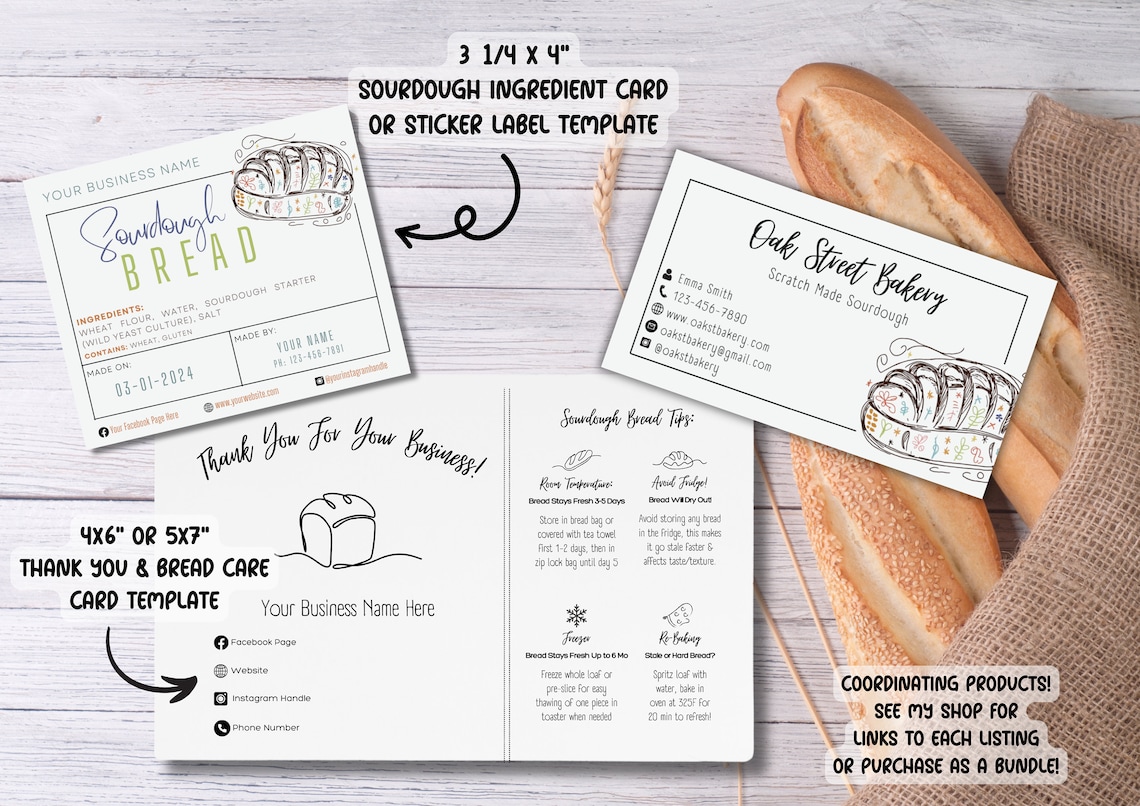 3 1/4 X 4"
SOURDOUGH INGREDIENT CARD
OR STICKER LABEL TEMPLATE
YOUR BUSINESS NAME
Sourdough
BREAD
INGREDIENTS:
WHEAT FLOUR, WATER, SOURDOUGH STARTER
(WILD YEAST CULTURE), SALT
CONTAINS: WHEAT, GLUTEN
MADE ON:
03-01-2024
MADE BY:
YOUR NAME
PH: 123-456-7891
Your Facebook Page Here
www.yourwebsite.com
@yourinstagramhandle
Oak Street Bakery
Scratch Made Sourdough
Emma Smith
123-456-7890
www.oakstbakery.com
oakstbakery@gmail.com
@oakstbakery
bakery
Thank You For Your Business!
Your Business Name Here
Facebook Page
Website
Instagram Handle
Phone Number
4X6" OR 5X7"
THANK YOU & BREAD CARE
CARD TEMPLATE
Sourdough Bread Tips:
Room Temperature:
Bread Stays Fresh 3-5 Days
Store in bread bag or
covered with tea towel
first 1-2 days, then in
zip lock bag until day 5
Avoid Fridge!
Bread Will Dry Out!
Avoid storing any bread
in the fridge, this makes
it go stale faster &
affects taste/texture.
Freezer
Bread Stays Fresh Up to 6 Mo
Freeze whole loaf or
pre-slice for easy
thawing of one piece in
toaster when needed
Re-Baking
Stale or Hard Bread?
Spritz loaf with
water, bake in
oven at 325F for
20 min to refresh!
COORDINATING PRODUCTS!
SEE MY SHOP FOR
LINKS TO EACH LISTING
OR PURCHASE AS A BUNDLE!